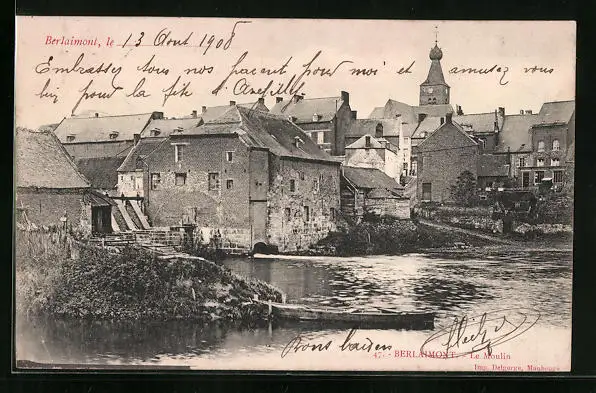 Berlaimont, le 13 Aout 1908
Embrassez tous nos parents pour moi et amusez vous
bien pour la fête
Bons baisers
47. - BERLAIMONT. - Le Moulin
Imp. Delgorge, Maubeuge